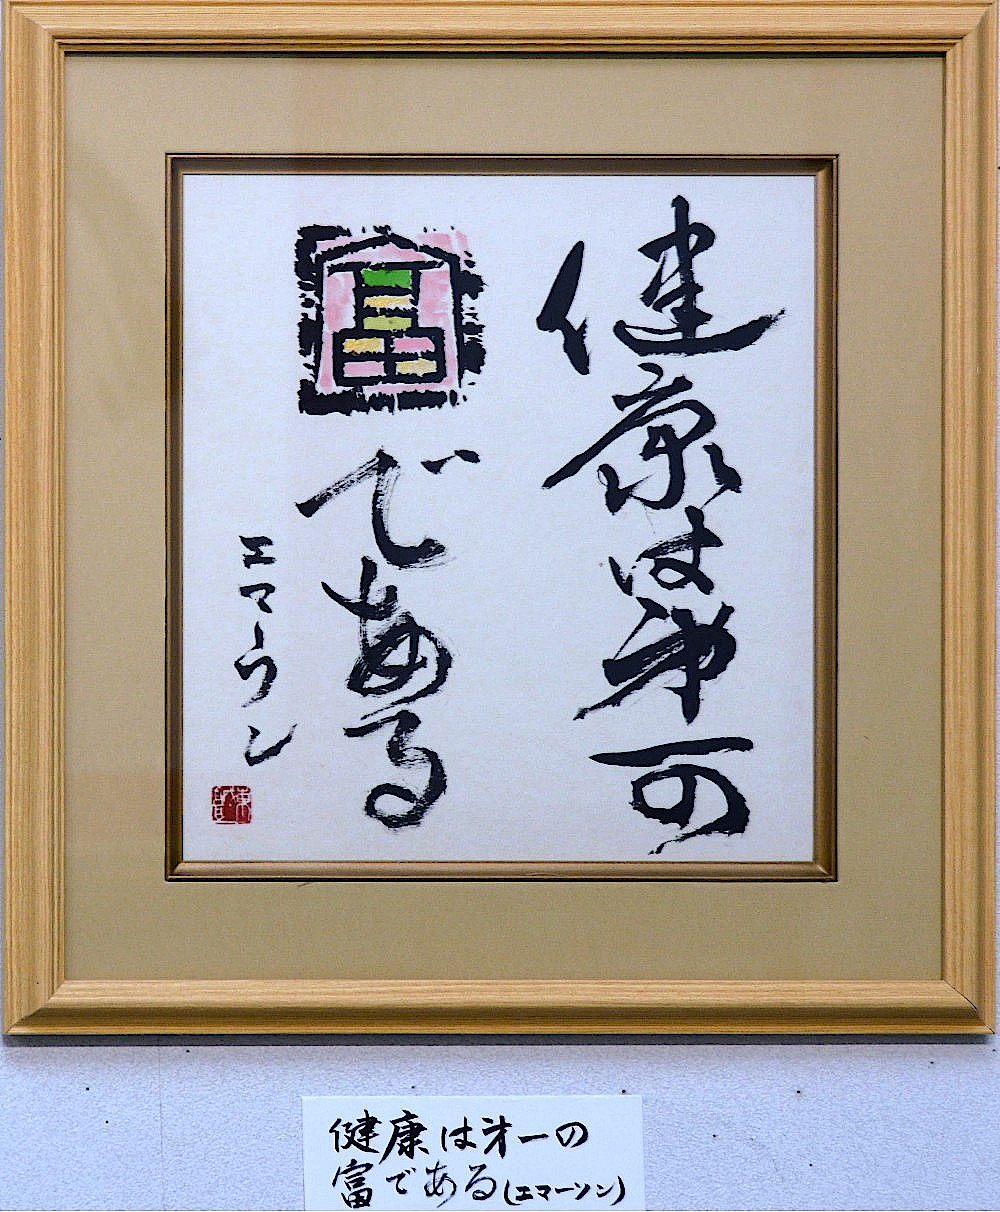 健康は第一の
富である
エマーソン
健康は第一の
富である(エマーソン)